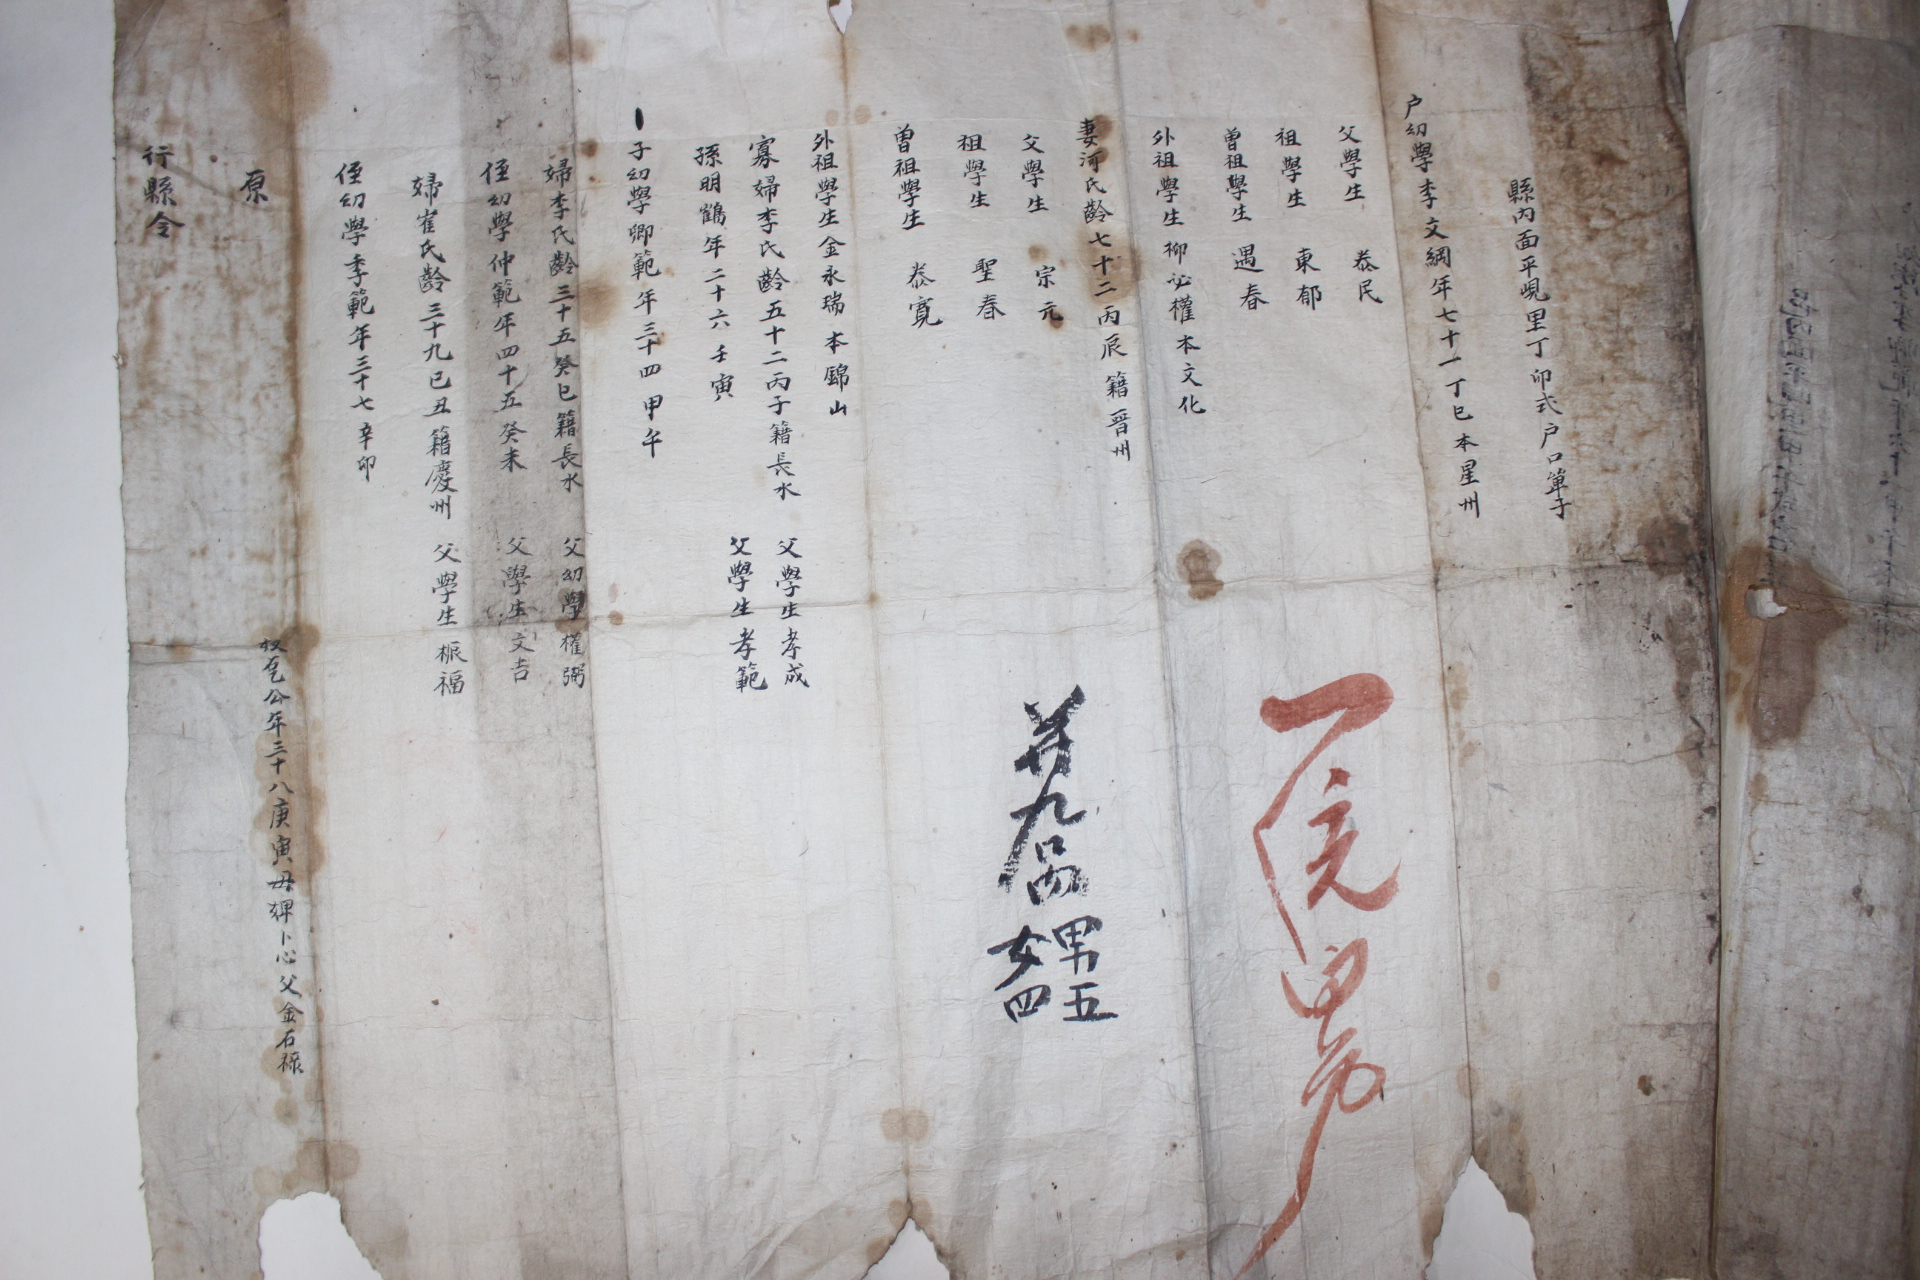 縣內面平峴里丁卯式戶口單子
戶幼學李文綱年七十一丁巳本星州
父學生 泰民
祖學生 東郁
曾祖學生 遇春
外祖學生柳必權本文化
妻河氏齡七十二丙辰籍晋州
父學生 宗元
祖學生 聖春
曾祖學生 泰寬
外祖學生金永瑞本錦山
寡婦李氏齡五十二丙子籍長水 父學生孝成
孫明鶴年二十六壬寅 父學生孝範
子幼學卿範年三十四甲午
婦李氏齡三十五癸巳籍長水 父幼學權弼
侄幼學仲範年四十五癸未 父學生文吉
婦崔氏齡三十九己丑籍慶州 父學生振福
侄幼學季範年三十七辛卯
公年三十八庚寅母婢卜心父金石祿
原
行縣令
九口
男五
女四